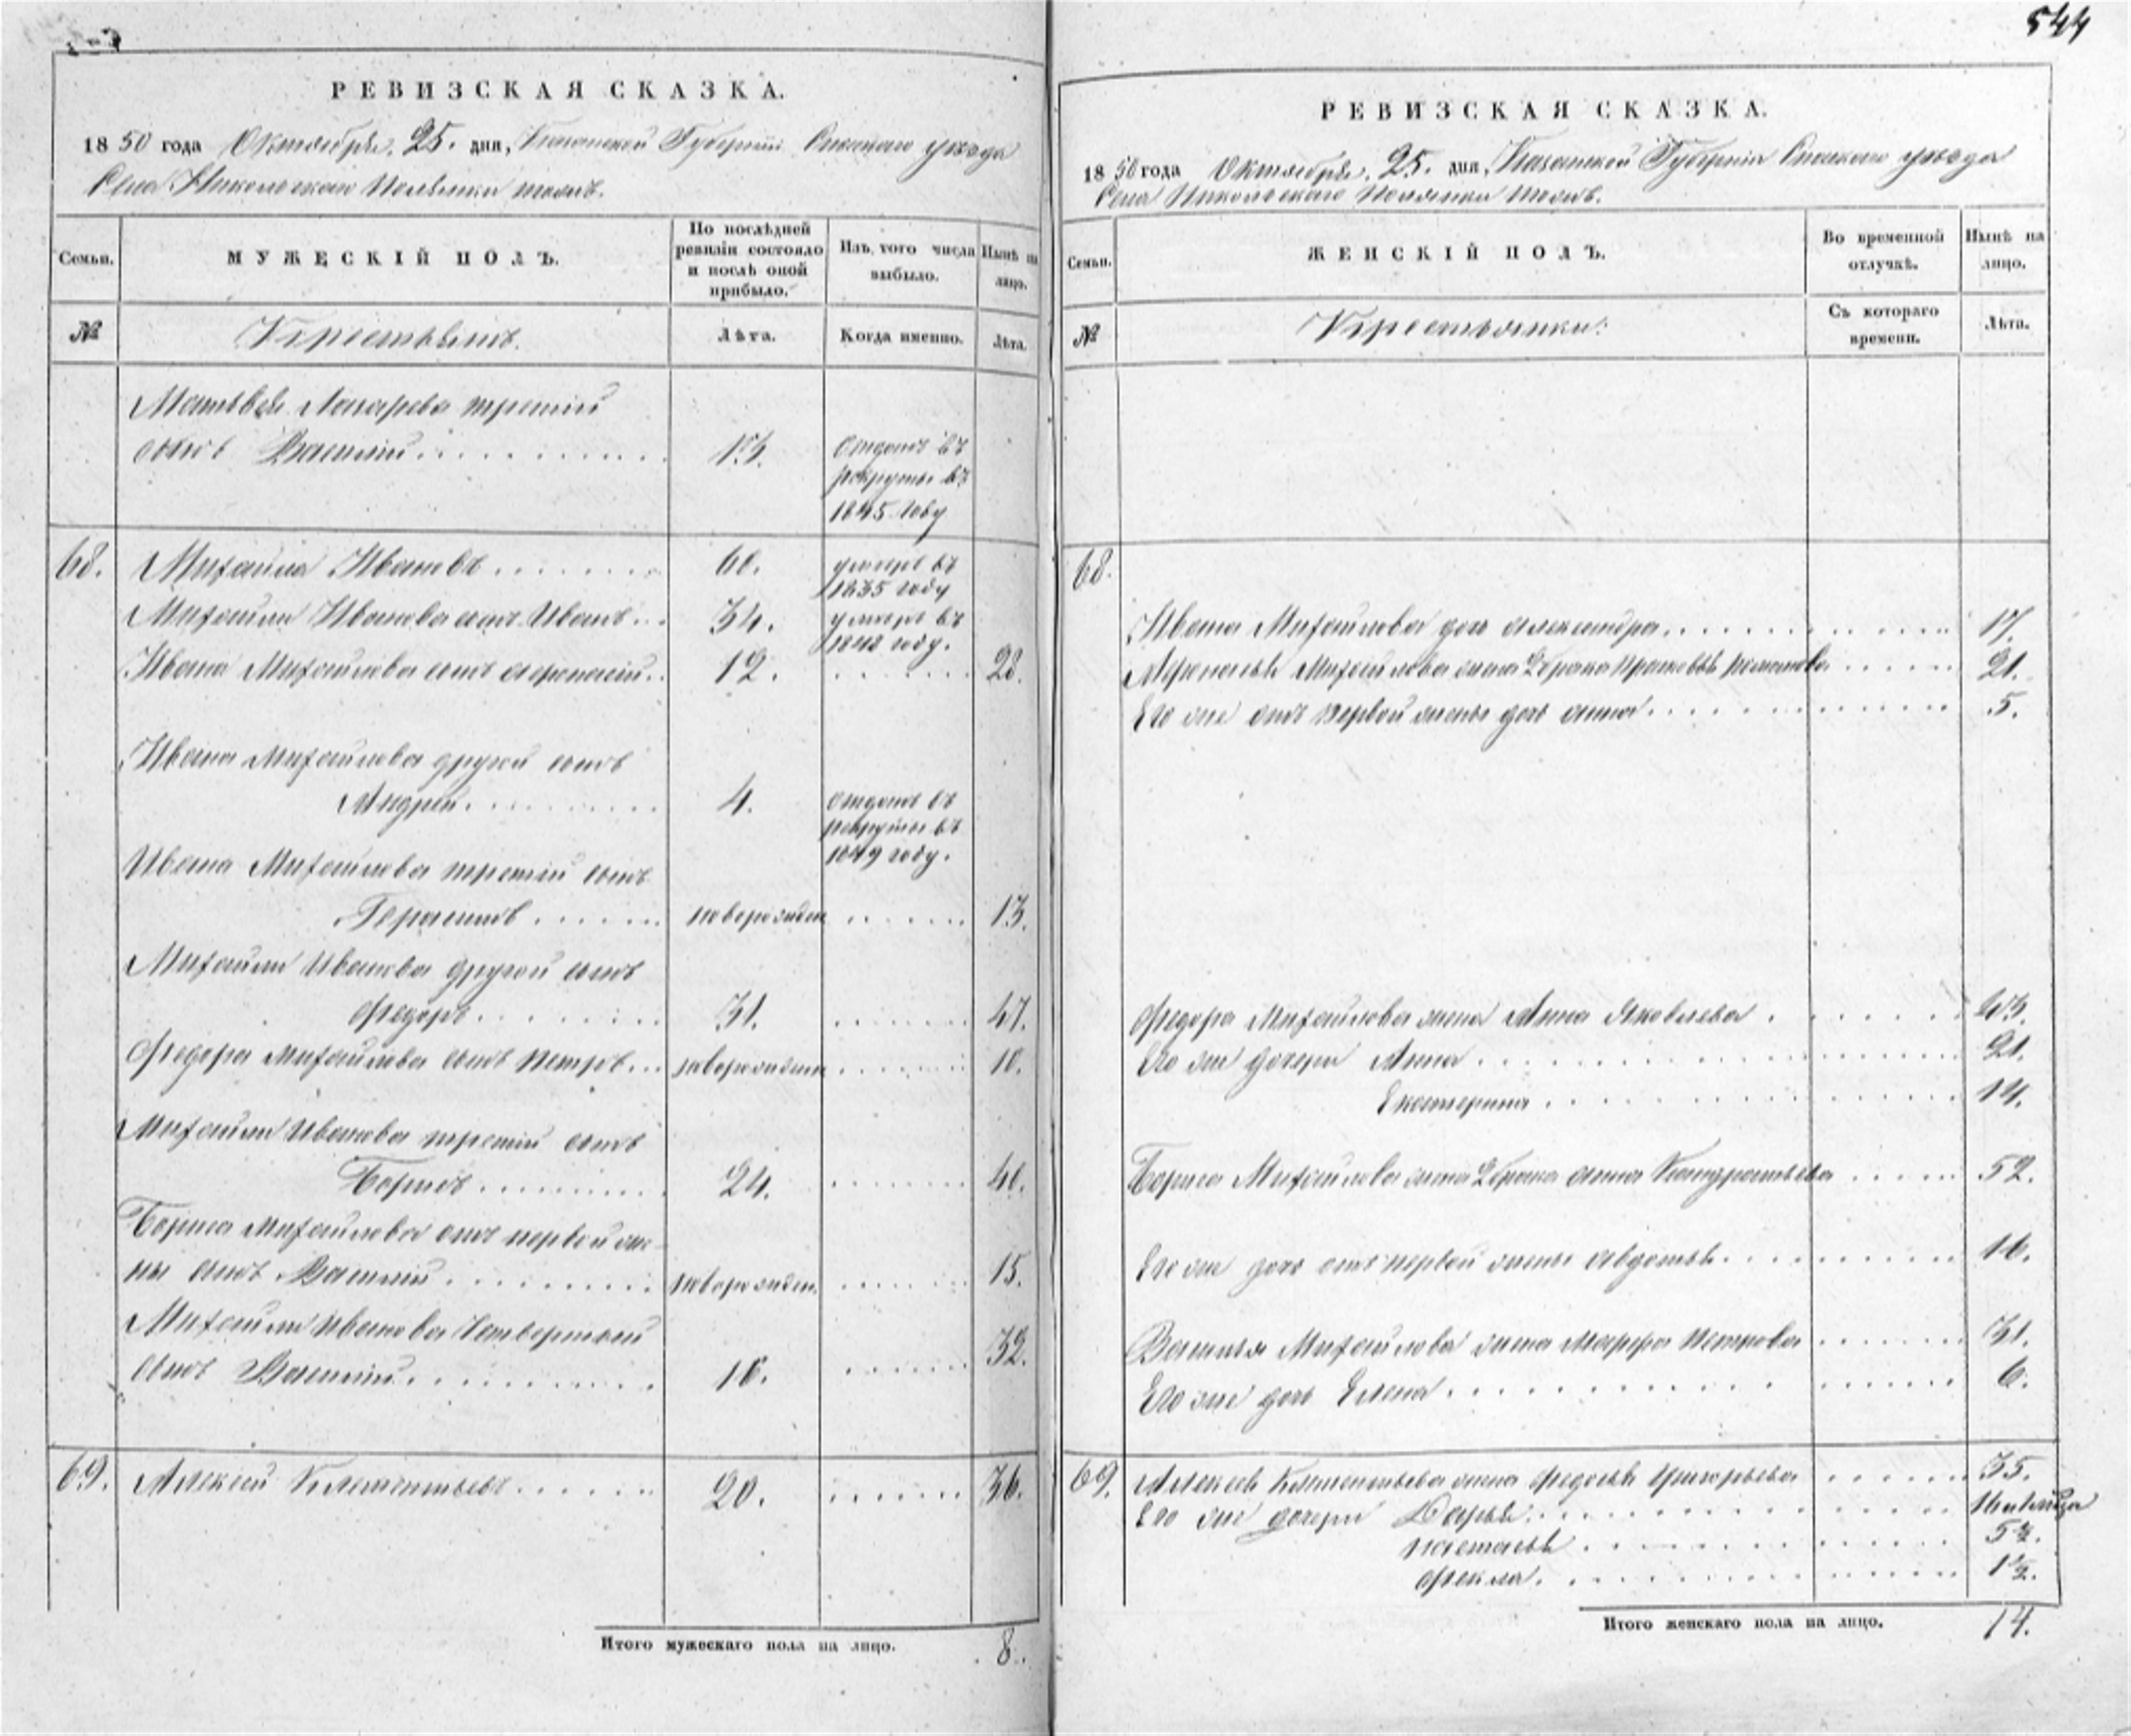 544
РЕВИЗСКАЯ СКАЗКА.
1850 года Октября 25. дня, Казанской Губернии Спаскаго уезда
Села Никольскаго Полянки тожъ.
Семьи.
МУЖЕСКІЙ ПОЛЪ.
По послѣдней ревизіи состояло и послѣ оной прибыло.
Изъ того числа выбыло.
Нынѣ на лицо.
№
Крестьянъ.
Лѣта.
Когда именно.
Лѣта.
Матвея Лазарева третий
сынъ Василий 13. Отданъ въ
рекруты въ
1845 году
68. Михайла Ивановъ 60. умеръ въ
1835 году
Михайлы Иванова сынъ Иванъ 34. умеръ въ
году.
Ивана Михайлова сынъ Афонасий 12. 28.
Ивана Михайлова другой сынъ
Андрей 4. отданъ въ
рекруты въ
1849 году.
Ивана Михайлова третий сынъ
Герасимъ новорожден 13.
Михайлы Иванова другой сынъ
Федоръ 31. 47.
Федора Михайлова сынъ Петръ новорожден 10.
Михайлы Иванова третий сынъ
Борисъ 24. 40.
Бориса Михайлова отъ первой же-
ны сынъ Василий новорожден. 15.
Михайлы Иванова Четвертый
сынъ Василий 16. 32.
69. Алексей Клементьевъ 20. 36.
Итого мужескаго пола на лицо. 8.
РЕВИЗСКАЯ СКАЗКА.
1850 года Октября 25. дня, Казанской Губернии Спаскаго уезда
Села Никольскаго Полянки тожъ.
Семьи.
ЖЕНСКІЙ ПОЛЪ.
Во временной отлучкѣ.
Нынѣ на лицо.
№
Крестьянки:
Съ котораго времени.
Лѣта.
68.
Ивана Михайлова дочь Александра 17.
Афонасья жена 2 брака Прасковья Романова 21.
Его же отъ первой жены дочь Анна 5.
Федора Михайлова жена Анна Яковлева 43.
Его же дочери Анна 21.
Екатерина 14.
Бориса Михайлова жена 2 брака Анна Кондратьева 52.
Его же дочь отъ первой жены Авдотья 16.
Василья Михайлова жена Марфа Петрова 31.
Его же дочь Елена 6.
69. Алексея Клементьева жена Федосья Григорьева 35.
Его же дочери Дарья
Настасья 5½.
Фекла 1½.
Итого женскаго пола на лицо. 14.